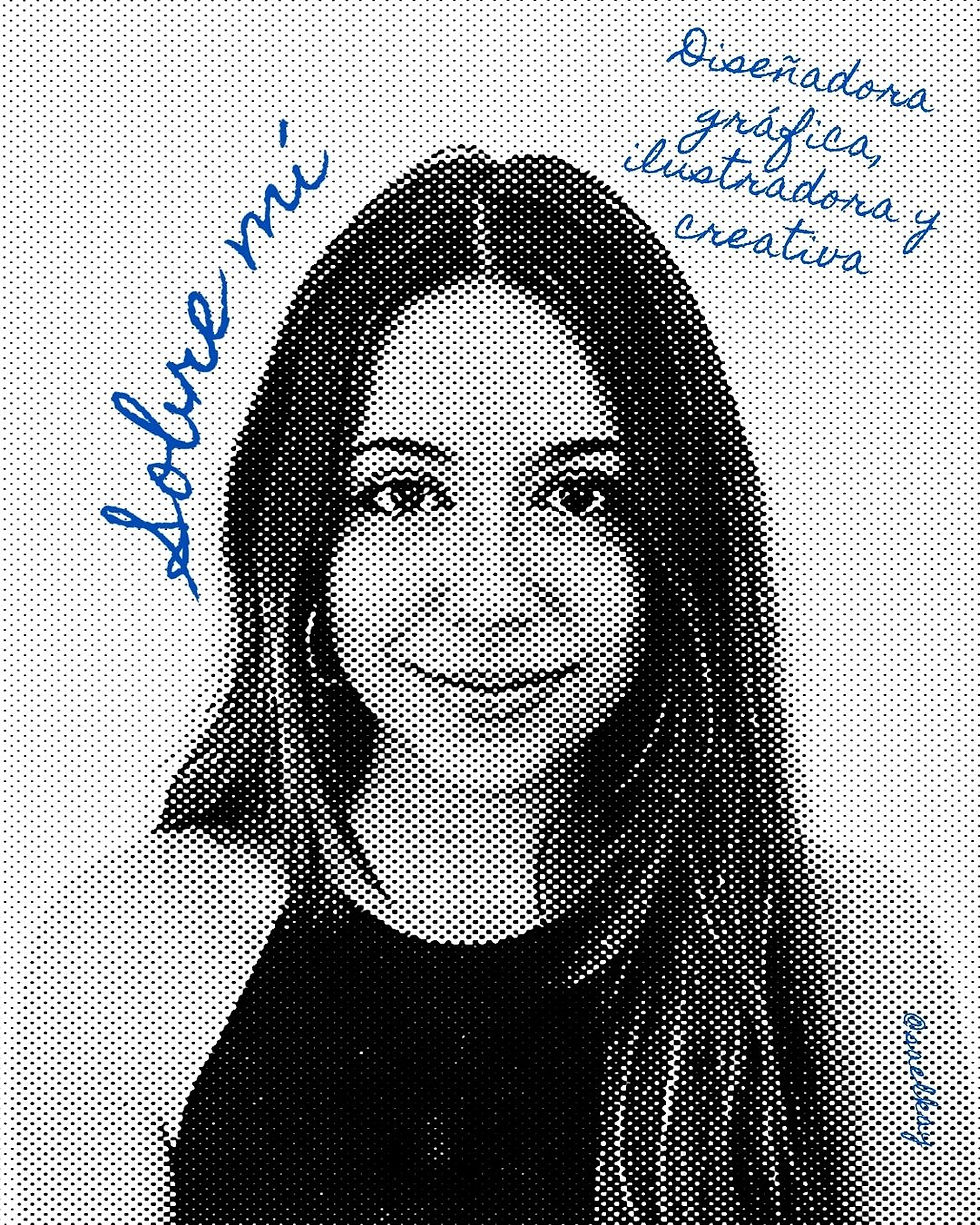 Sobre mí
Diseñadora
gráfica,
ilustradora y
creativa